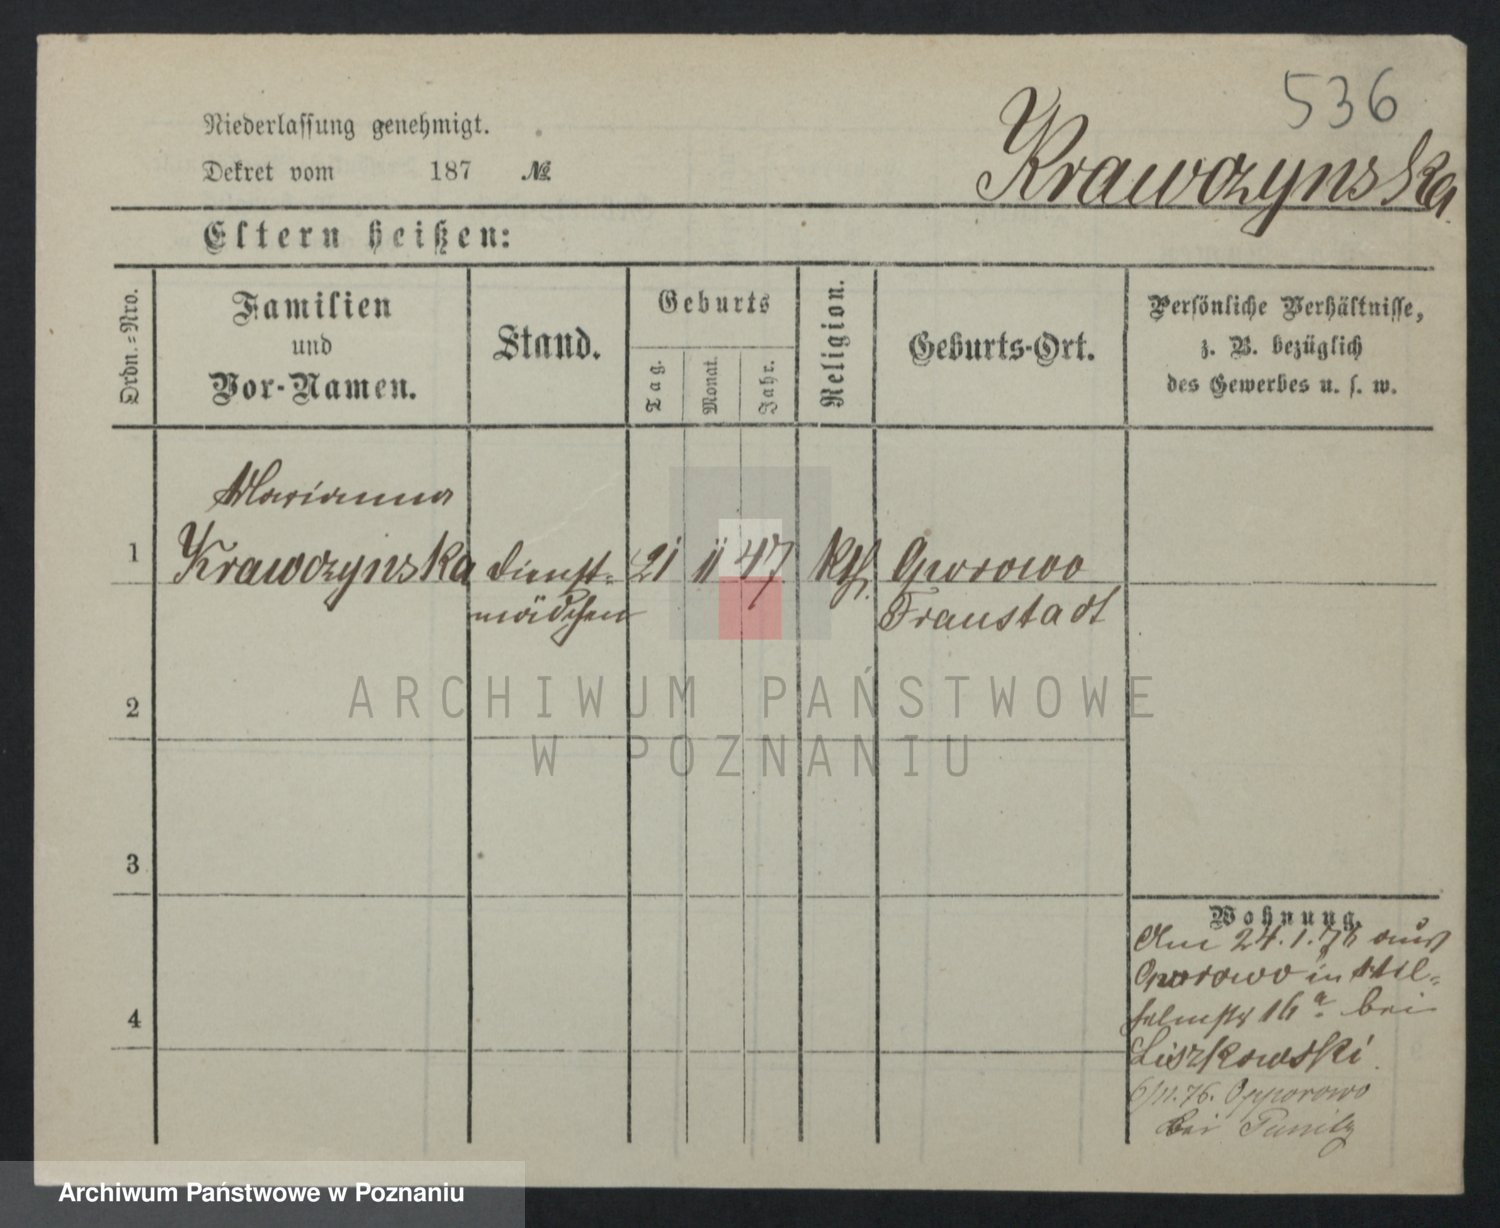 536
Krawczynska
Niederlassung genehmigt.
Dekret vom 187 №
Eltern heißen:
Ordn.-Nro.
Familien
und
Vor-Namen.
Stand.
Geburts
Tag.
Monat.
Jahr.
Religion.
Geburts-Ort.
Persönliche Verhältnisse,
z. B. bezüglich
des Gewerbes u. s. w.
Marianna
1 Krawczynska Dienst- 21 11 47 kth. Oporowo
mädchen Fraustadt
2
3
4
Wohnung.
Am 24.1.76 aus
Oporowo in Wil-
helmstr 16a bei
Liszkowski.
6/11.76. Opporowo
bei Punitz
ARCHIWUM PAŃSTWOWE
W POZNANIU
Archiwum Państwowe w Poznaniu